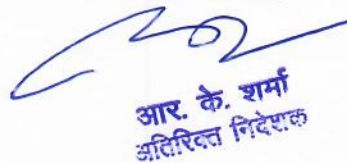 आर. के. शर्मा
अतिरिक्त निदेशक